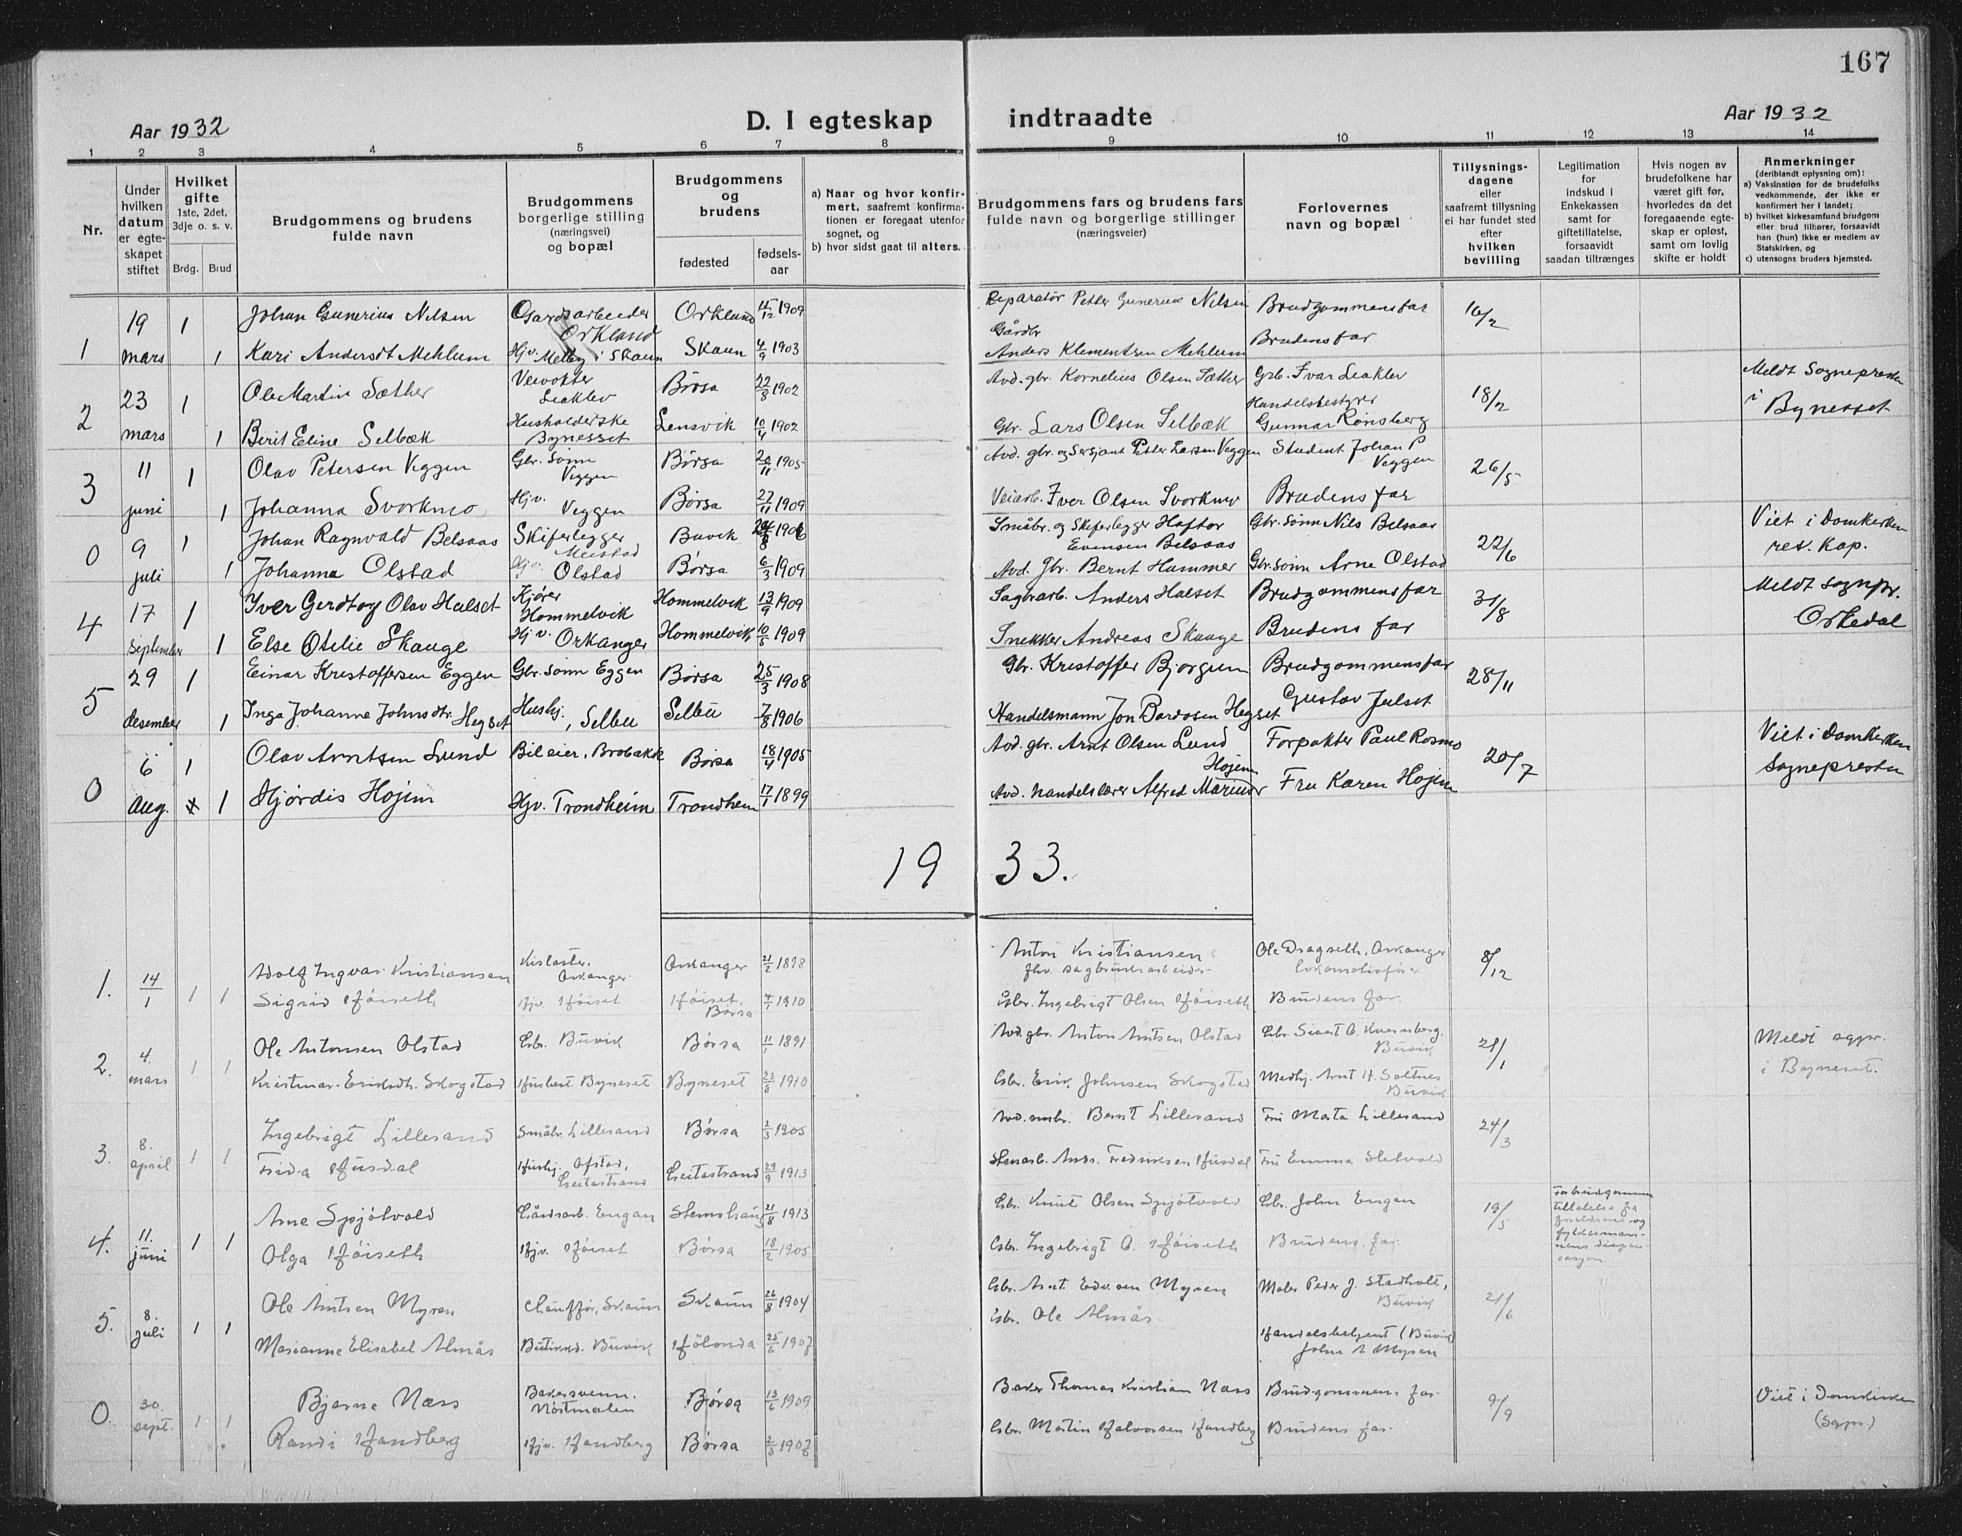 167
Aar 1932
D. I egteskap indtraadte
Aar 1932
1 2 3 4 5 6 7 8 9 10 11 12 13 14
Nr.
Under hvilken datum er egteskapet stiftet
Hvilket gifte 1ste, 2det, 3dje o. s. v.
Brdg. Brud
Brudgommens og brudens fulde navn
Brudgommens borgerlige stilling (næringsvei) og bopæl
Brudgommens og brudens
fødested fødselsaar
a) Naar og hvor konfirmert, saafremt konfirmationen er foregaat utenfor sognet, og
b) hvor sidst gaat til alters.
Brudgommens fars og brudens fars fulde navn og borgerlige stillinger (næringsveier)
Forlovernes navn og bopæl
Tillysningsdagene eller saafremt tillysning ei har fundet sted efter hvilken bevilling
Legitimation for indskud i Enkekassen samt for giftetillatelse, forsaavidt saadan tiltrænges
Hvis nogen av brudefolkene har været gift før, hvorledes da det foregaaende egteskap er opløst, samt om lovlig skifte er holdt
Anmerkninger (deriblandt oplysning om):
a) Vaksination for de brudefolks vedkommende, der ikke er konfirmert her i landet;
b) hvilket kirkesamfund brudgom eller brud tilhører, forsaavidt han (hun) ikke er medlem av Statskirken, og
c) utensogns bruders hjemsted.
1 19 mars 1 Johan Gunerius Nilsen Gardsarbeider Orkland Orkland 15/12 1909 Reparatør Petter Gunerius Nilsen Brudgommens far 16/2
1 Kari Andersdt Mehlum Hjv. Melby i Skaun Skaun 4/9 1903 Gårdbr Anders Klementsen Mehlum Brudens far
2 23 mars 1 Ole Martin Sæther Veivokter Børsa 22/8 1902 Avd. gbr. Kornelius Olsen Sæther Gbr. Ivar 18/2 Meldt Sognepresten i Bynesset
1 Berit Eline Selbæk Husholderske Bynesset Lensvik 10/4 1902 Gbr. Lars Olsen Selbæk Handelsbestyrer Gunnar Rønsberg
3 11 juni 1 Olav Petersen Viggen Gbr. sønn Viggen Børsa 20/11 1905 Avd. gbr. og Sersjant Petter Larsen Viggen Student Johan P Viggen 26/5
1 Johanna Svorkmo Hjv. Viggen Børsa 27/11 1909 Veiarb. Iver Olsen Svorkmo Brudens far
0 9 juli 1 Johan Ragnvald Belsaas Skiferlegger Buvik 1906 Småbr. og Skiferlegger Haftor Evensen Belsaas Gbr. sønn Nils Belsaas 22/6 Viet i Domkirken res. kap.
1 Johanna Olstad Hjv. Olstad Børsa 6/3 1909 Avd. Gbr. Bernt Hammer Gbr. sønn Arne Olstad
4 17 September 1 Iver Gerdtoy Olav Halset Kjører Hommelvik Hommelvik 13/9 1909 Sagarb. Anders Halset Brudgommens far 31/8 Meldt sognpr. Orkedal
1 Else Otelie Skauge Hjv. Orkanger Hommelvik 10/5 1909 Snekker Andreas Skauge Brudens far
5 29 desember 1 Einar Kristoffersen Eggen Gbr. sønn Eggen Børsa 25/3 1908 Gbr. Kristoffer Bjorgum Brudgommens far 28/11
1 Inga Johanne Johnsdtr Hegset Hushj., Selbu Selbu 7/8 1906 Handelsmann Jon Bardosen Hegset Gustav Julset
0 6 Aug. 1 Olav Arntsen Lund Bileier, Brobakk Børsa 18/4 1905 Avd. gbr. Arnt Olsen Lund Forpakter Paul Rosmo 20/7 Viet i Domkirken Sognepresten
1 Hjørdis Hojem Hjv. Trondheim Trondheim 17/1 1899 Avd. handelslærer Alfred Marinus Hojem Fru Karen Hojem
1933.
1. 14/1 1 1 Adolf Ingvar Kristiansen Orkanger Orkanger 21/2 1898 Anton Kristiansen fhv. sagbruksarbeider Ole Dragseth, Orkanger lokomotivfører 8/12
Sigrid Høiseth Hjv. Høiset Høiset, Børsa 1910 Gbr. Ingebrigt Olsen Høiseth Brudens far.
2. 4. mars 1 1 Ole Antonsen Olstad Gbr. Buvik Børsa 11/1 1891 Avd. gbr. Anton Arntsen Olstad Gbr. Sivert O. Kvernberg, Buvik 21/1 Meldt sgpr. i Byneset.
Kristmar Eriksdt. Skogstad Husbest. Byneset Byneset 23/8 1910 Gbr. Erik Johnsen Skogstad Medhj. Arnt H. Saltnes Buvik
3. 8. april 1 1 Ingebrigt Lillesand Småbr. Lillesand Børsa 2/3 1905 Avd. smbr. Bernt Lillesand Fru Marta Lillesand 24/3
Frida Husdal Hushj. Ofstad, Geitastrand Geitastrand 29/9 1913 Stenarb. Andr. Fredriksen Husdal Fru Emma Sletvold
4. 11. juni 1 1 Arne Spjøtvold Gårdsarb. Engan Stemshaug 21/8 1913 Gbr. Knut Olsen Spjøtvold Gbr. John Engen 19/5 For brudgommen tillatelse fra foreldrene og fyldesmannens dispensasjon.
Olga Høiseth Hjv. Høiset Børsa 18/2 1905 Gbr. Ingebrigt O. Høiseth Brudens far
5. 8. juli 1 1 Ole Arntsen Myren Chauffør, Skaun Skaun 26/8 1904 Gbr. Arnt Edvsen Myren Maler Peder J. Stadholt, Buvik 21/6
Marianne Elisabet Almås Butikkd. Buvik Hølonda 25/6 1907 Gbr. Ole Almås Handelsbetjent (Buvik) John A Myren
0. 30. sept. 1 1 Bjarne Næss Bakersvenn. Nostmelen Børsa 13/6 1909 Baker Thomas Kristian Næss Brudgommens far. 9/9 Viet i Domkirken (Sgpr.)
Randi Handberg Hjv. Handberg Børsa 2/3 1907 Gbr. Martin Halvorsen Handberg Brudens far.